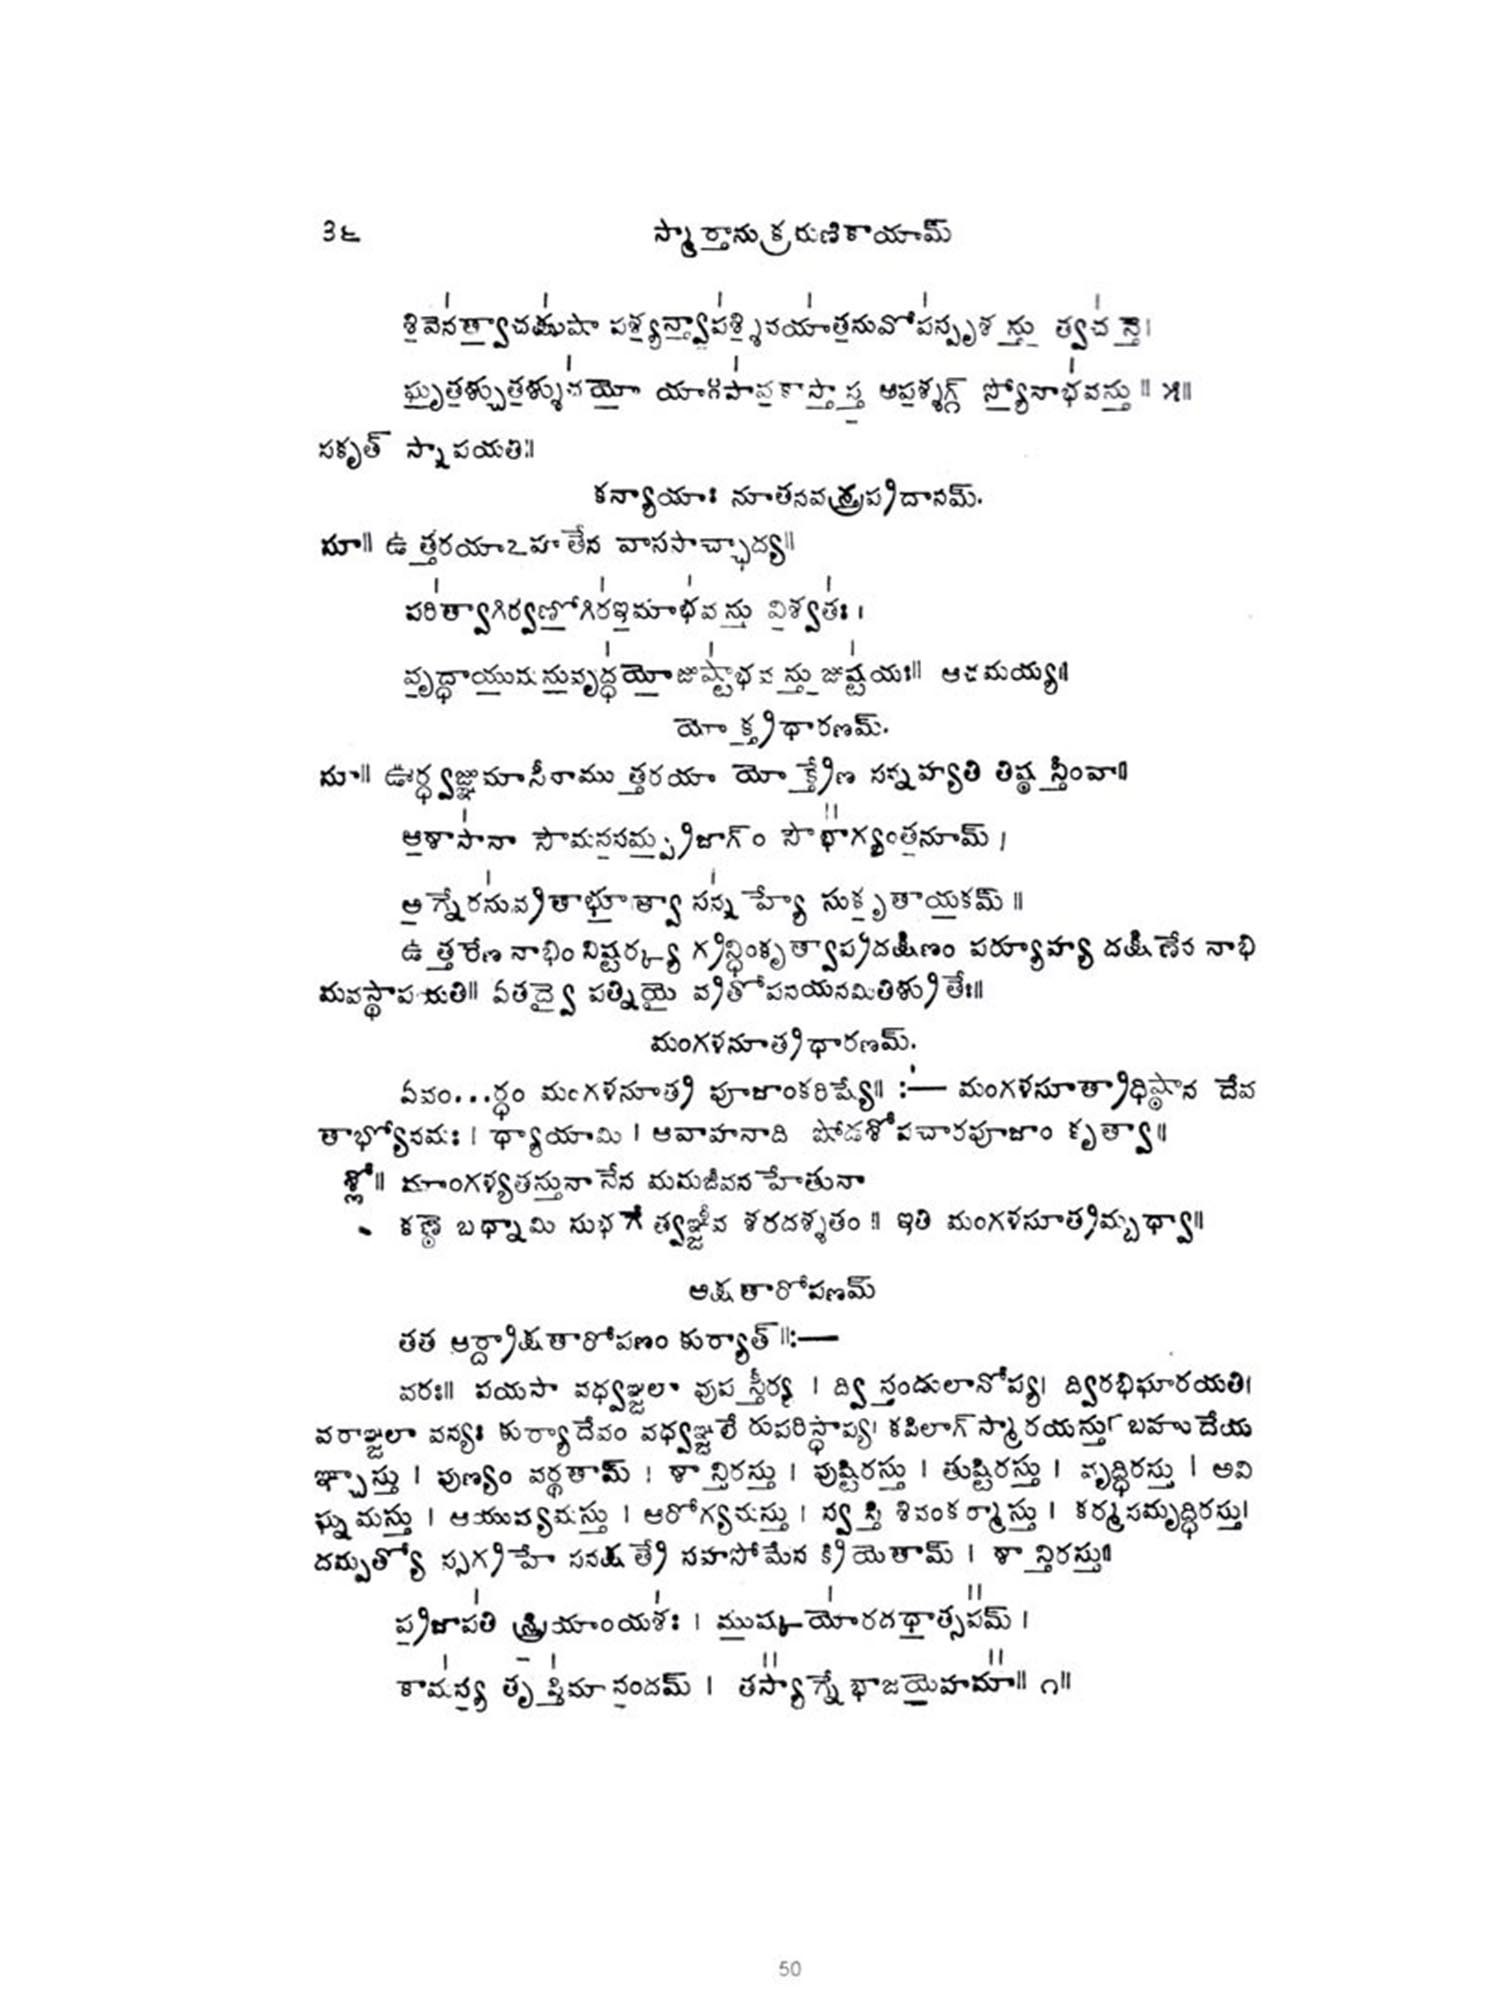 ౩౬ స్మార్తానుక్రమణికాయామ్
శివేన॑త్వా॒చక్షుషా పశ్య॒న్త్వా॒ప॑శ్శి॒వయా॑త॒నువోప॑స్పృశ॒న్తు॒ త్వచ॑న్తే।
ఘృ॒త॒శ్చుత॒శ్శుచ॑యో॒ యాః పా॑వ॒కాస్తా స్త॒ ఆప॒శ్శగ్గ్ స్యో॒నాభ॑వన్తు॒ ॥ ౫॥
సకృత్ స్నాపయతి॥
కన్యాయాః నూతనవస్త్రప్రదానమ్.
సూ॥ ఉత్తరయాఽహతేన వాససాచ్ఛాద్య॥
పరి॑త్వాగిర్వణో॒గిర॑ఇ॒మాభ॑వన్తు॒ వి॒శ్వత॑ః ।
వృ॒ద్ధాయు॒మను॒వృద్ధ॑యో॒జుష్టా॑భవన్తు॒ జుష్ట॑యః॥ ఆచమయ్య॥
యోక్త్రధారణమ్.
సూ॥ ఊర్ధ్వజ్ఞుమాసీనాముత్తరయా యోక్త్రేణ సన్నహ్యతి తిష్ఠన్తీంవా॥
ఆ॒శాసా॑నా సౌమన॒సమ్ప్ర॒జాగ్ం సౌభా᳚గ్యంత॒నూమ్ ।
అ॒గ్నేరను॑వ్రతాభూ॒త్వా సన్న॑హ్యే సుకృ॒తాయ॒కమ్ ॥
ఉత్తరేణ నాభిం నిష్టర్క్య గ్రన్థింకృత్వాప్రదక్షిణం పర్యూహ్య దక్షిణేన నాభి
మవస్థాపయతి॥ ఏతద్వై పత్నియై వ్రతోపనయనమితిశ్రుతేః॥
మంగళసూత్రధారణమ్.
ఏవం...ర్థం మంగళసూత్ర పూజాంకరిష్యే॥ :— మంగళసూత్రాధిష్ఠాన దేవ
తాభ్యోనమః । ధ్యాయామి । ఆవాహనాది షోడశోపచారపూజాం కృత్వా॥
శ్లో॥ మాంగళ్యతన్తునానేన మమజీవనహేతునా
కణ్ఠే బధ్నామి సుభగే త్వఞ్జీవ శరదశ్శతం ॥ ఇతి మంగళసూత్రమ్బధ్వా॥
అక్షతారోపణమ్
తత ఆర్ద్రాక్షతారోపణం కుర్యాత్॥:—
వరః॥ పయసా వధ్వఞ్జలా వుపస్తీర్య । ద్విస్తండులానోప్య। ద్విరభిఘారయతి।
వరాఞ్జలా వన్యః కుర్యాదేవం వధ్వఞ్జలేరుపరిస్థాప్య। కపిలాగ్ స్మారయన్తు। బహుదేయ
ఞ్చాస్తు । పుణ్యం వర్థతామ్ । శాన్తిరస్తు । పుష్టిరస్తు । తుష్టిరస్తు । వృద్ధిరస్తు । అవి
ఘ్నమస్తు । ఆయుష్యమస్తు । ఆరోగ్యమస్తు । స్వస్తి శివంకర్మాస్తు । కర్మసమృద్ధిరస్తు।
దమ్పత్యో స్సగ్రహే సనక్షత్రే సహసోమేన క్రియేతామ్ । శాన్తిరస్తు॥
ప్ర॒జాప॑తి స్త్రి॒యాంయశ॑ః । ము॒ష్కయో॑రదధా॒త్సప᳚మ్ ।
కామ॑స్య॒ తృప్తి॑మా॒నందమ్ । తస్యా᳚గ్నే భాజయే॒హమా᳚॥ ౧॥
50